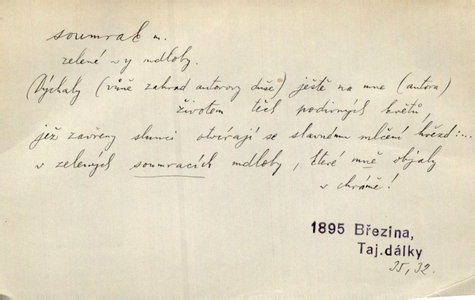 soumrak m.
zelené ~y mdloby.
(Dýchaly (vůně zahrad autorovy duše) ještě na mne (autora)
životem těch podivných květů,
jež zavřeny slunci otvírají se slavnému mlčení hvězd:...
v zelených soumracích mdloby, které mně objaly
v chrámě!
1895 Březina,
Taj.dálky
35, 32.